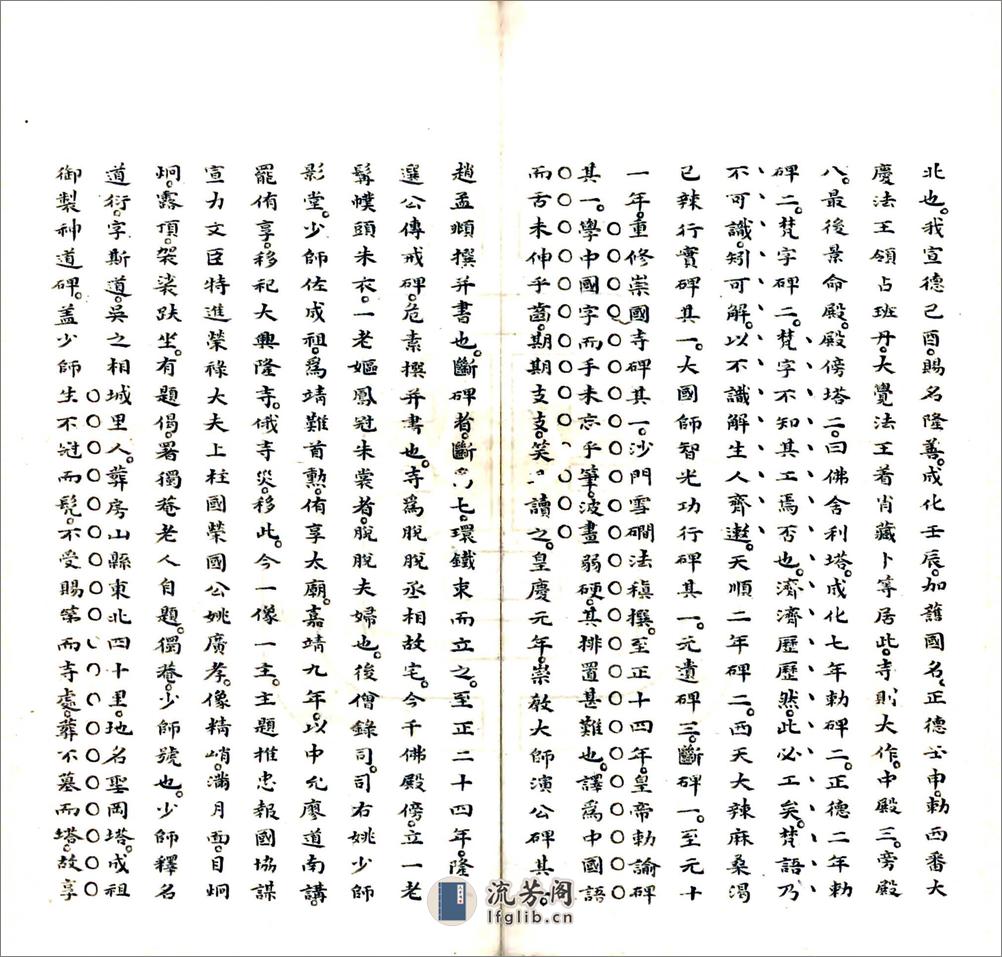 北也。我宣德己酉。賜名隆善。成化壬辰。加護國名、正德壬申。勅西番大
慶法王領占班丹。大覺法王着肖藏卜等居此。寺則大作。中殿三。旁殿
八。最後景命殿。殿傍塔二。曰佛舍利塔。成化七年勅碑二。正德二年勅
碑二。梵字碑二。梵字不知其工焉否也。濟濟歷歷然。此必工矣。梵語乃
不可識。矧可解。以不識解生人齊遬。天順二年碑二。西天大辣麻桑渴
巳辣行實碑其一。大國師智光功行碑其一。元遺碑三。斷碑一。至元十
一年。重修崇國寺碑其一。沙門雪磵法稹撰。至正十四年。皇帝勅諭碑
其一。學中國字而手未忘乎筆。波畫弱硬。其排置甚難也。譯爲中國語
而舌未伸乎齒。期期支支。笑 讀之。皇慶元年。崇敎大師演公碑其
趙孟頫撰并書也。斷碑者。斷 七。環鐵束而立之。至正二十四年。隆
選公傳戒碑。危素撰并書也。寺爲脫脫丞相故宅。今千佛殿傍。立一老
髯幞頭朱衣。一老嫗鳳冠朱裳者。脫脫夫婦也。後僧錄司。司右姚少師
影堂。少師佐成祖。爲靖難首勳。侑享太廟。嘉靖九年。以中允廖道南講。
罷侑享。移祀大興隆寺。俄寺災。移此。今一像一主。主題推忠報國協謀
宣力文臣特進榮祿大夫上柱國榮國公姚廣孝。像精峭。滿月面。目炯
炯。露頂。袈裟趺坐。有題偈。署獨菴老人自題。獨菴。少師號也。少師釋名
道衍。字斯道。吳之相城里人。葬房山縣東北四十里。地名聖岡塔。成祖
御製神道碑。蓋少師生不冠而髡。不受賜第而寺處。葬不墓而塔。故享
流芳阁
lfglib.cn